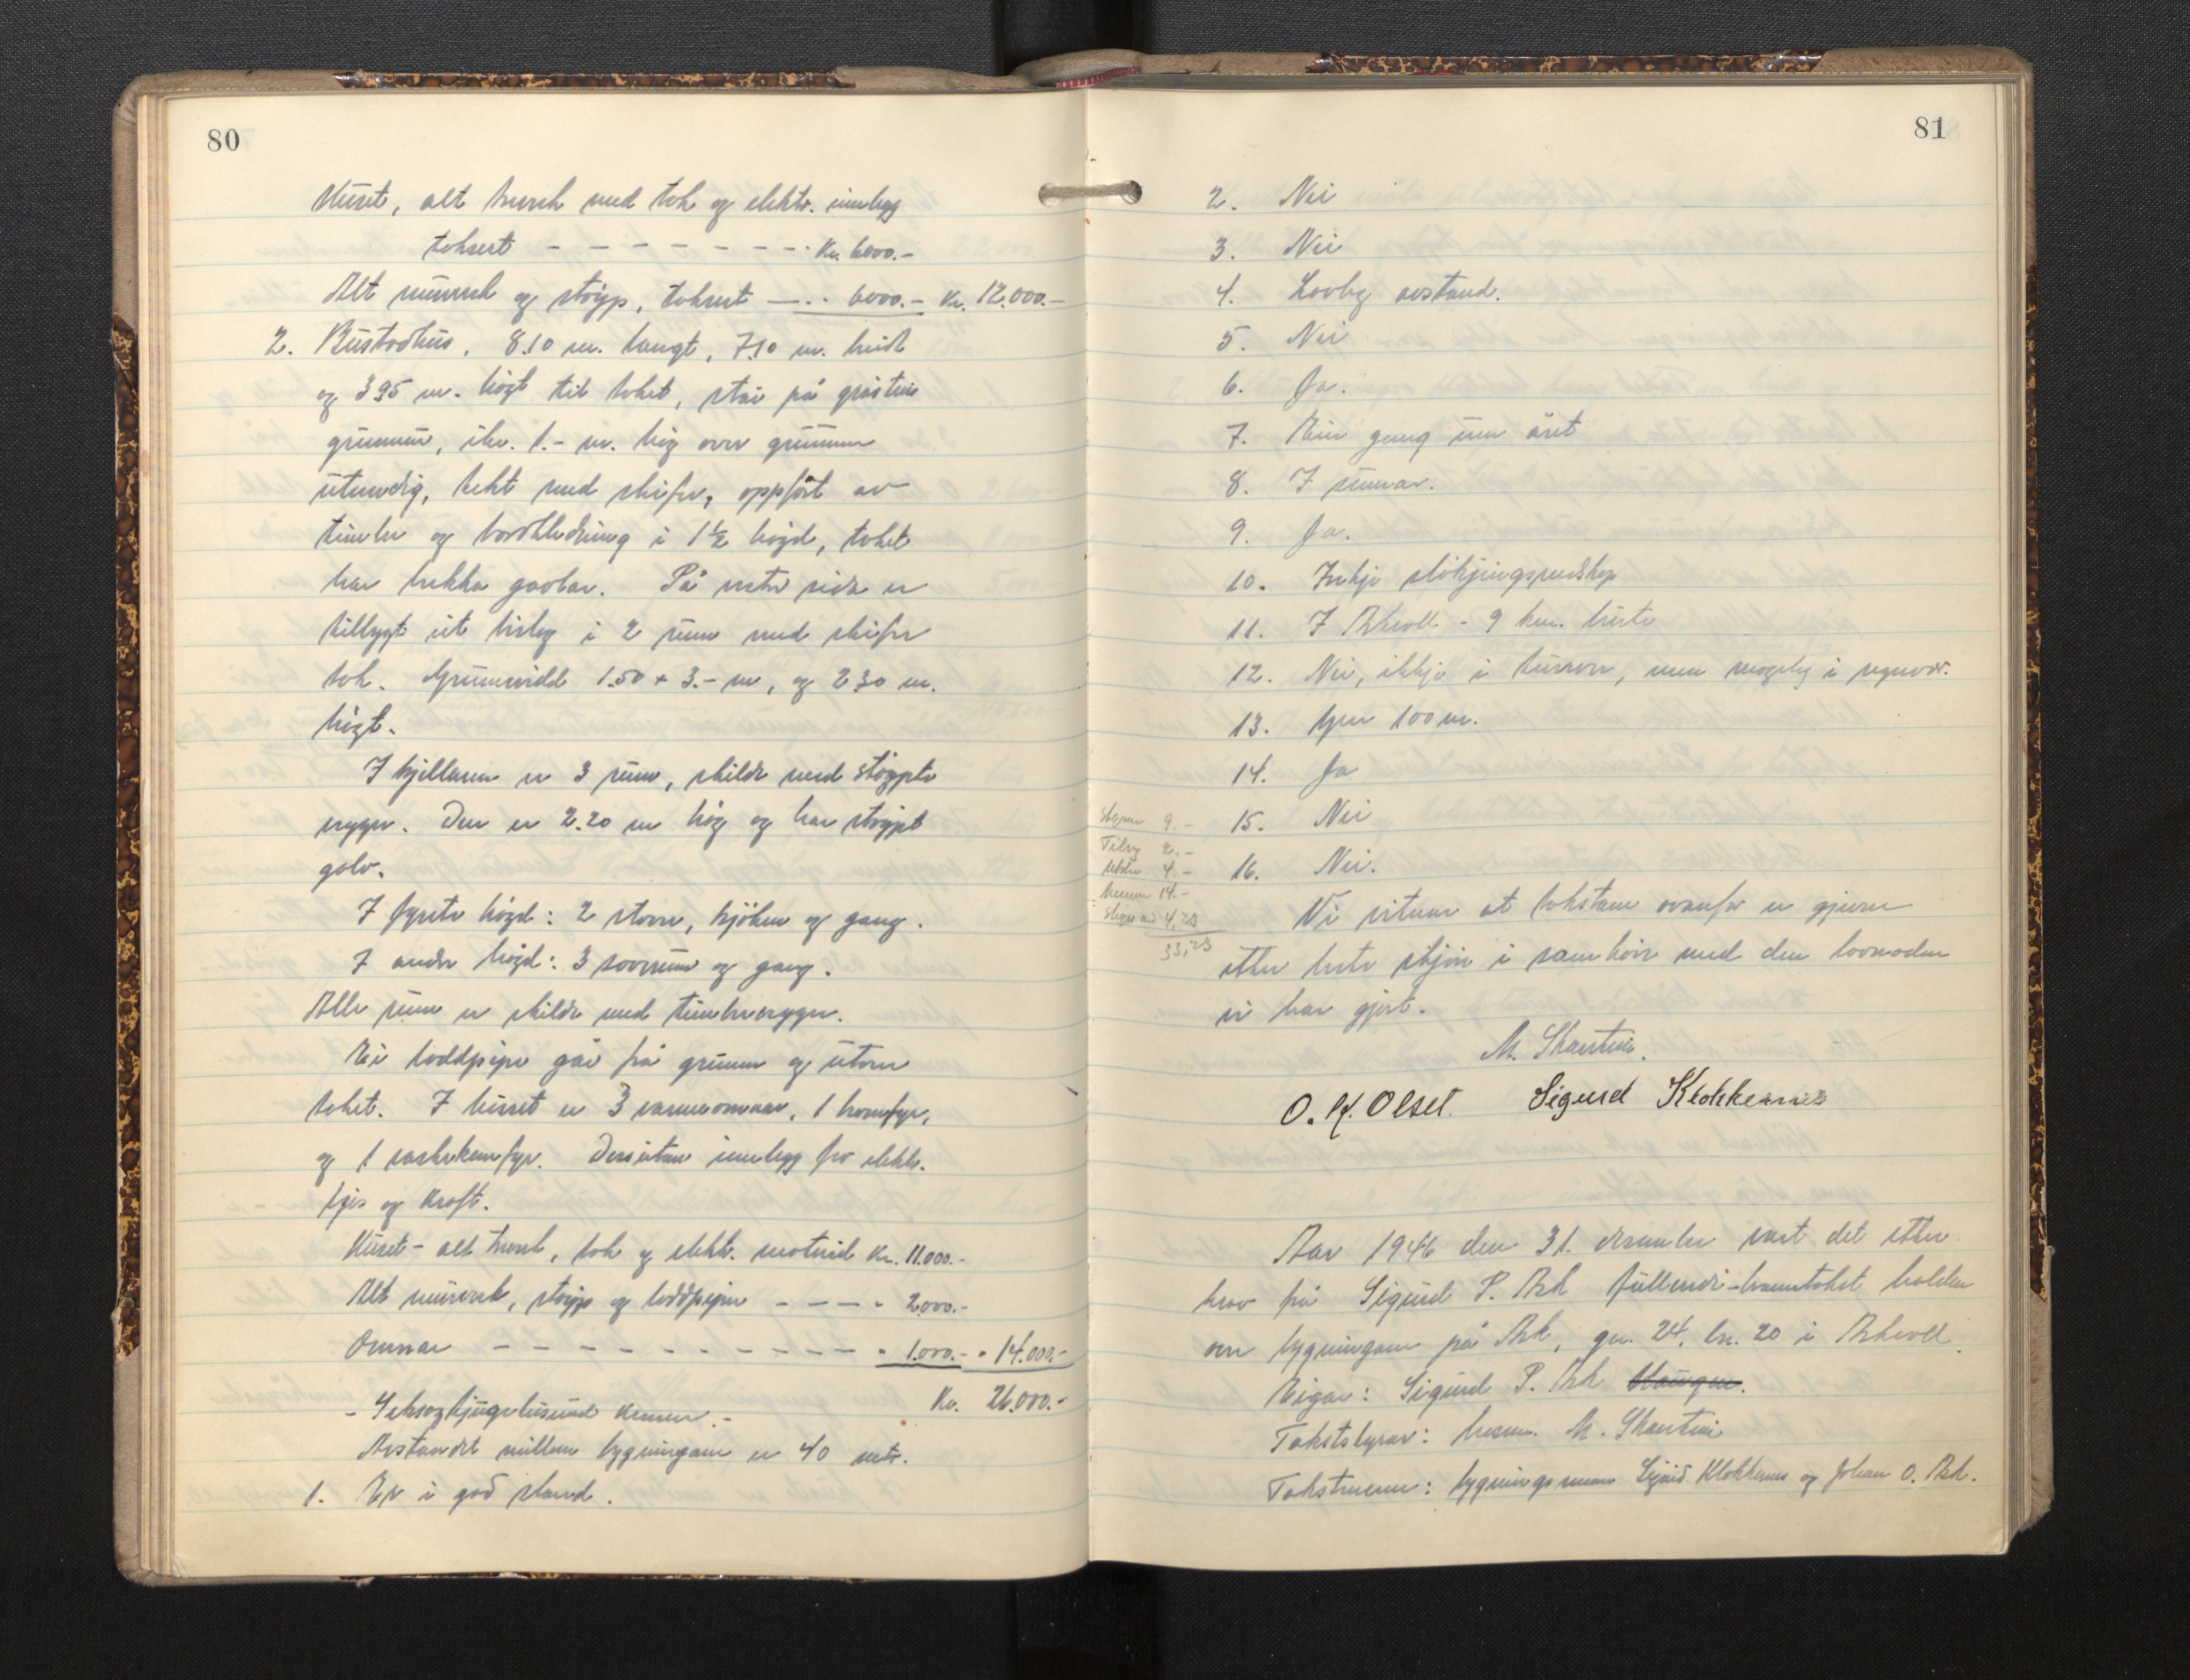 80
Huset, alt treverk med tak og elektr. innlegg
taksert - - - - - - - - Kr. 6000.-
Alt murverk og støyp, taksert - - 6000.- Kr. 12.000.-
2. Bustadhus, 8.10 m. langt, 7.10 m. breidt
og 3.95 m. høgt til taket, står på gråsteins
grunnmur, ikr. 1.- m. høg over grunnen
utvendig, tekt med skifer, oppført av
timber og bordkledning i 1½ høgd, taket
har brekka gavlar. På vestre sida er
tilbygt eit bislag i 2 rum med skifer
tak. Grunnvidd 1.50 + 3.- m, og 2.30 m.
høgt.
I kjellaren er 3 rum, skilde med støypte
vegger. Den er 2.20 m høg og har støypt
golv.
I fyrste høgd: 2 stover, kjøken og gang.
I andre høgd: 3 soverum og gang.
Alle rum er skilde med timbervegger.
Ei loddpipe går frå grunnen og utover
taket. I huset er 3 varmeomnar, 1 komfyr,
og 1 vaskekumfyr. Dessutan innlegg for elektr.
ljos og kraft.
Huset - alt treverk, tak og elektr. materiell Kr. 11.000.-
Alt murverk, støyp og loddpiper - - - - 2.000.-
Omnar - - - - - - - - - - - - 1.000.- " 14.000.-
Kr. 26.000.-
- Seksogtjugetusund kroner. -
Avstandet millom bygningane er 40 meter.
1. Er i god stand.
81
2. Nei
3. Nei
4. Lovleg avstand.
5. Nei
6. Ja.
7. Ein gang um året
8. I rumar.
9. Ja.
10. Inkje sløkjingsreidskap
11. I Askvoll - 9 km. borte
12. Nei, ikkje i turrver, men mogeleg i regnver.
13. 100 m.
14. Ja
15. Nei
16. Nei.
9.-
Tilsyn 2.-
4.-
14.-
4,23
33,23
Vi vitnar at takstane ovanfor er gjevne
etter beste skjøn i samhøve med den lovnaden
vi har gjort.
M. Skarstein.
O. K. Olset. Sigurd Klokkernes
Aar 1946 den 31. desember vart det etter
krav frå Sigurd P. Ask fullverdi-branntakst halden
over bygningane på Ask, gn. 24, bn. 20 i Askvoll.
Eigar: Sigurd P. Ask Haugen.
Takststyrar: lensm. M. Skarstein
Takstmenn: bygningsmenn Sigurd Klokkernes og Johan O. Ask.